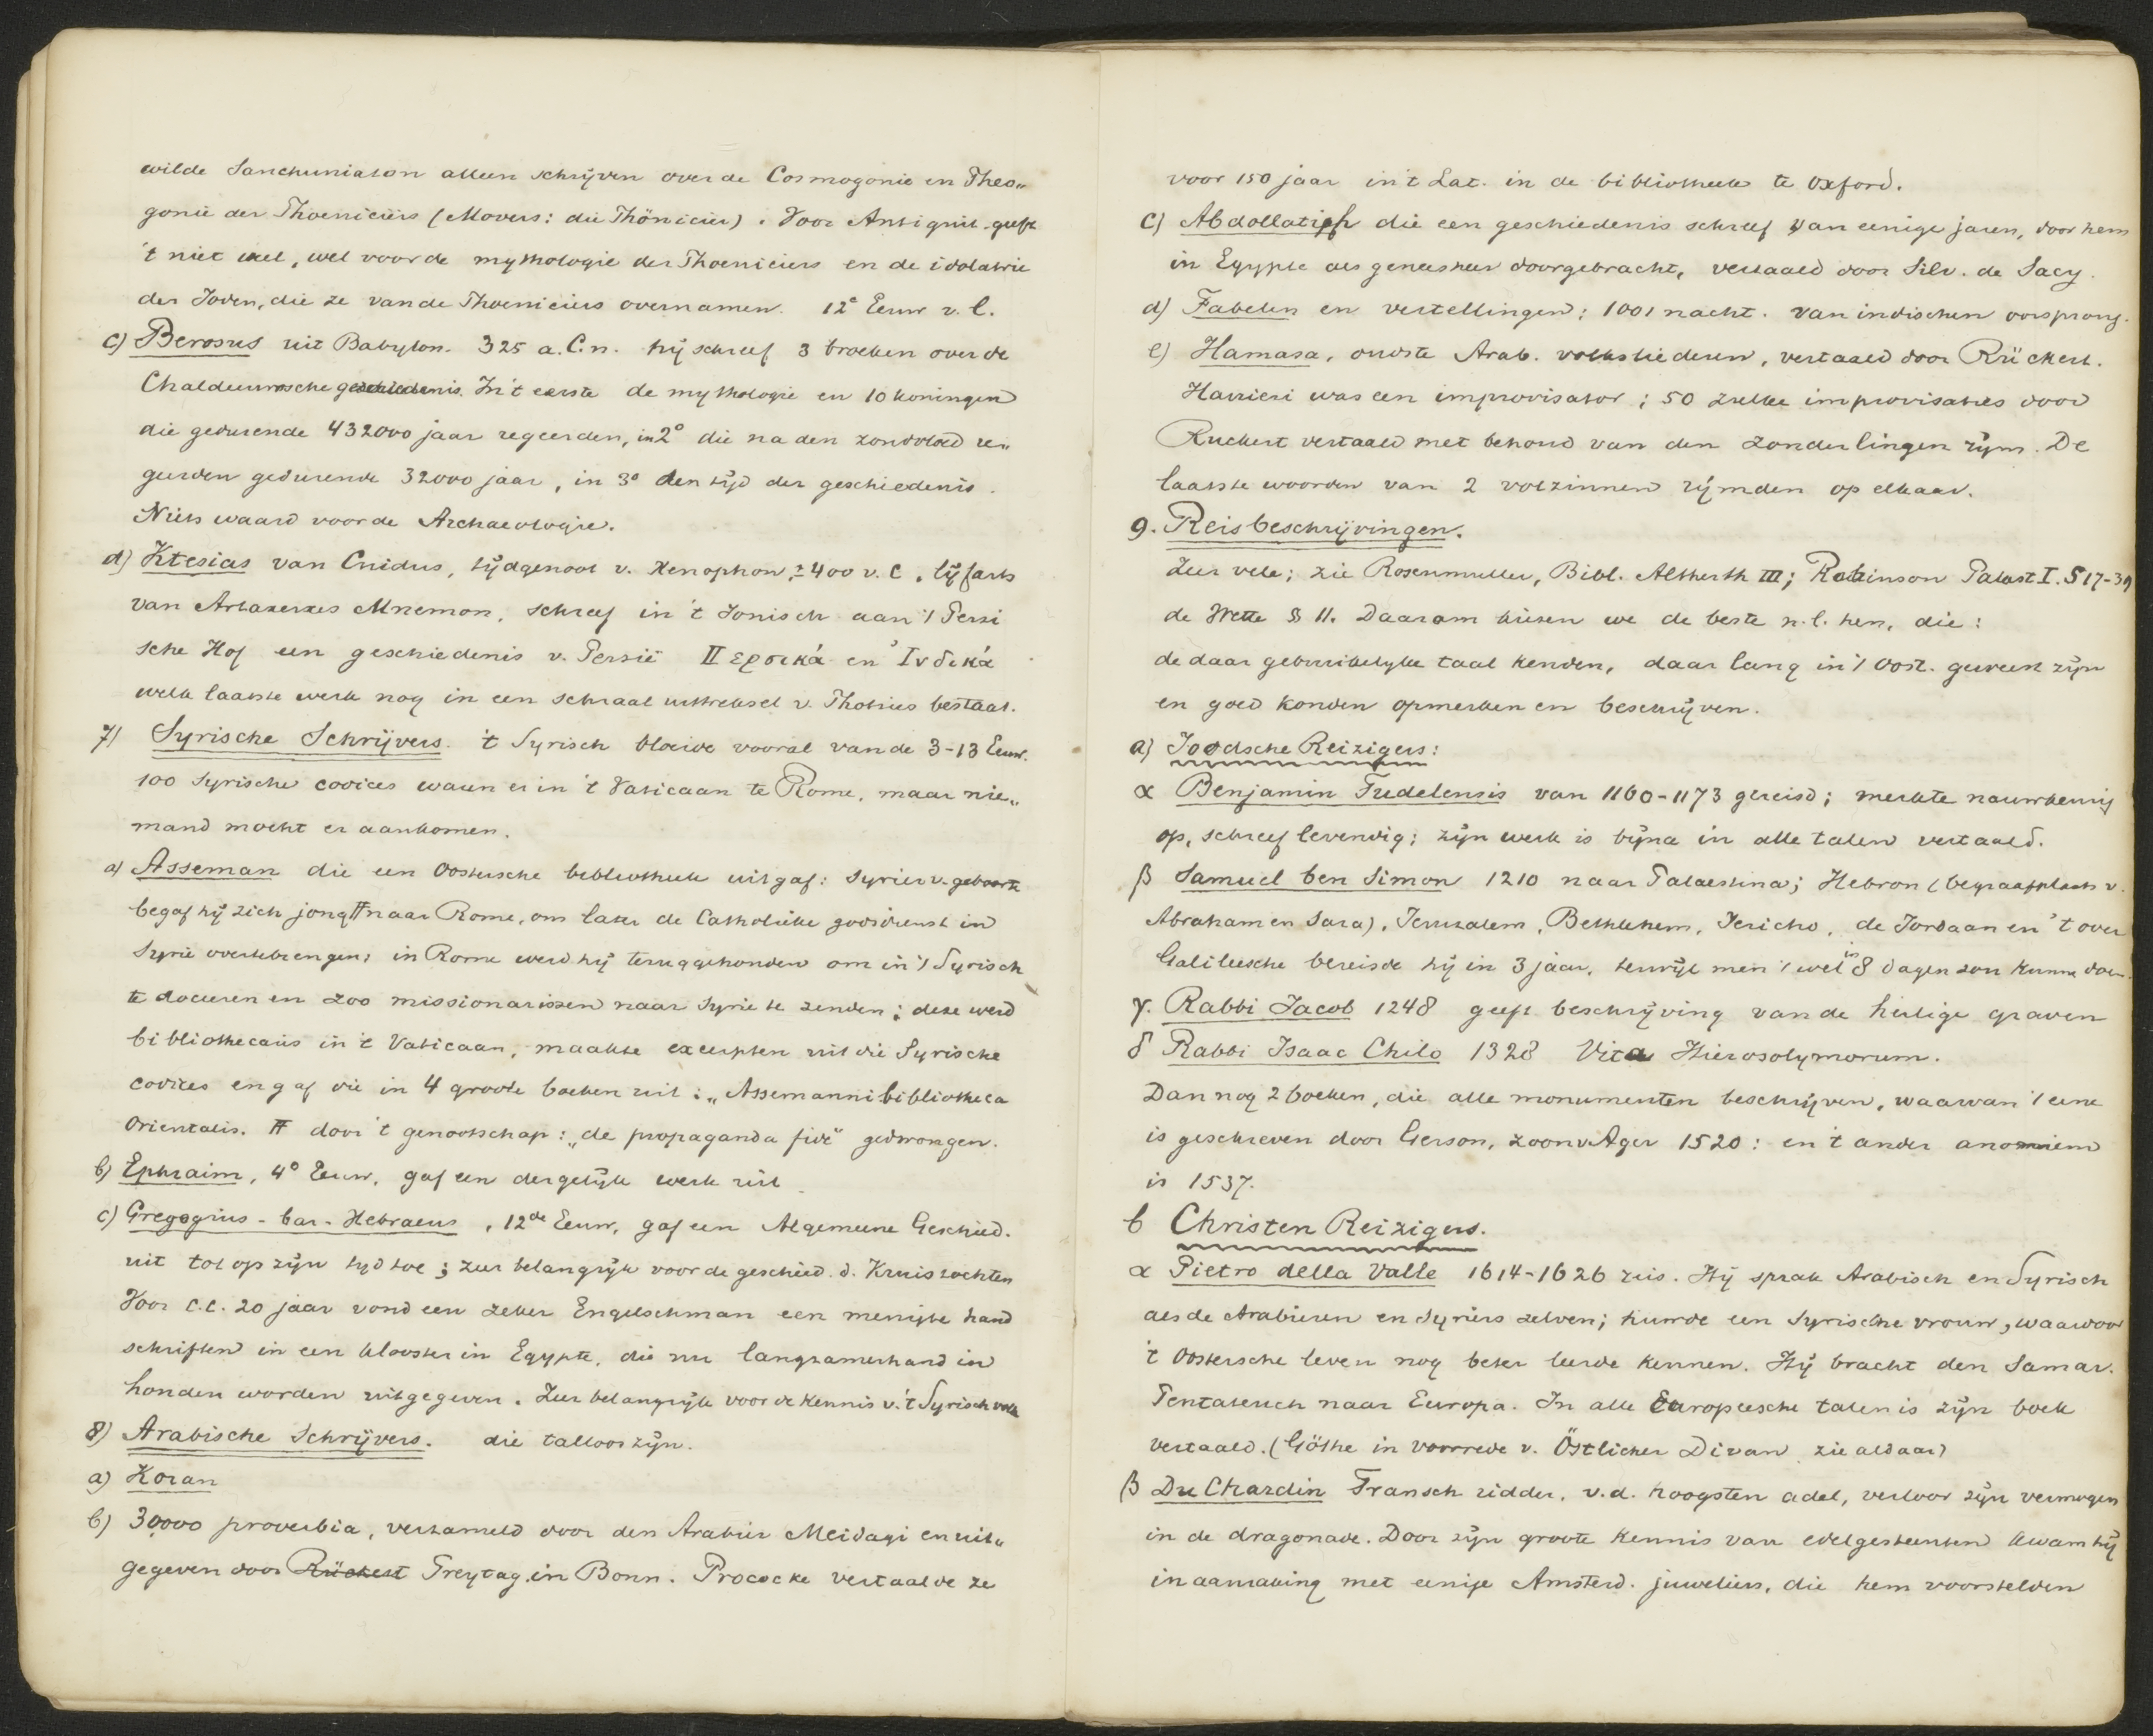 wilde Sanchuniaton alleen schrijven over de Cosmogonie en Theo„
gonie der Phoeniciërs (Movers: die Phönicier). Voor Antiquit. geeft
't niet veel, wel voor de mythologie der Phoeniciers en de idolatrie
der Joden, die ze van de Phoeniciërs overnamen. 12e Eeuw v. C.
c) Berosus uit Babylon. 325 a.C.n. hij schreef 3 boeken over de
Chaldeeuwsche geschiedenis. In 't eerste de mythologie en 10 koningen
die gedurende 432000 jaar regeerden, in 2° die na den zondvloed re„
geerden gedurende 32000 jaar, in 3° den tijd der geschiedenis.
Niets waard voor de Archaeologie.
d) Ktesias van Cnidus, tijdgenoot v. Xenophon, ± 400 v. C. lijfarts
van Artaxerxes Mnemon, schreef in 't Ionisch aan 't Persi
sche Hof een geschiedenis v. Persië Περσικά en Ἰνδικά
welk laatste werk nog in een schraal uittreksel v. Photius bestaat.
7) Syrische Schrijvers. 't Syrisch bloeide vooral van de 3-13 Eeuw.
100 Syrische codices waren er in 't Vaticaan te Rome, maar nie„
mand mocht er aankomen.
a) Asseman die een Oostersche bibliotheek uitgaf: Syriër v. geboorte
begaf hij zich jong # naar Rome, om later de Catholieke godsdienst in
Syrië overtebrengen; in Rome werd hij teruggehouden om in 't Syrisch
te doceeren en zoo missionarissen naar Syrie te zenden; deze werd
bibliothecaris in 't Vaticaan, maakte excerpten uit die Syrische
codices en gaf die in 4 groote boeken uit: „Assemanni bibliotheca
Orientalis. # door 't genootschap: „de propaganda fide" gedwongen.
b) Ephraim, 4° Eeuw, gaf een dergelijk werk uit
c) Gregogrius-bar-Hebraeus, 12de Eeuw, gaf een Algemeene Geschied.
uit tot op zijn tijd toe; zeer belangrijk voor de geschied. d. Kruistochten
Voor c.c. 20 jaar vond een zeker Engelschman een menigte hand
schriften in een klooster in Egypte, die nu langzamerhand in
Londen worden uitgegeven. Zeer belangrijk voor de kennis v. 't Syrisch volk
8) Arabische Schrijvers. die talloos zijn.
a) Koran
b) 30000 proverbia, verzameld door den Arabier Meidagi en uit„
gegeven door Rückert Freytag in Bonn. Prococke vertaalde ze
voor 150 jaar in 't Lat. in de bibliotheek te Oxford.
c) Abdollatiph die een geschiedenis schreef van eenige jaren, door hem
in Egypte als geneesheer doorgebracht, vertaald door Silv. de Sacy.
d) Fabelen en vertellingen: 1001 nacht. van indischen oorsprong.
e) Hamasa, oudste Arab. volksliederen, vertaald door Rückert.
Harrieri was een improvisator; 50 zulke improvisaties door
Ruckert vertaald met behoud van den zonderlingen rijm. De
laatste woorden van 2 volzinnen rijmden op elkaar.
9. Reisbeschrijvingen.
Zeer vele; zie Rosenmuller, Bibl. Altherth III; Robinson Palast I. S 17-39
de Wette § 11. Daarom kiezen we de beste n.l. hen, die:
de daar gebruikelijke taal kenden, daar lang in 't Oost. geweest zijn
en goed konden opmerken en beschrijven.
a) Joodsche Reizigers:
α Benjamin Tudelensis van 1160-1173 gereisd; merkte nauwkeurig
op, schreef levendig; zijn werk is bijna in alle talen vertaald.
β Samuel ben Simon 1210 naar Palaestina; Hebron (begraafplaats v.
Abraham en Sara), Jeruzalem, Bethlehem, Jericho, de Jordaan en 't over
Galileesche bereisde hij in 3 jaar, terwijl men 't wel in 8 dagen zou kunne doen.
γ. Rabbi Jacob 1248 geeft beschrijving van de heilige graven
δ Rabbi Isaac Chilo 1328 Vita Hierosolymorum.
Dan nog 2 boeken, die alle monumenten beschrijven, waarvan 't eene
is geschreven door Gerson, zoon v Ager 1520: en 't ander anoniem
is 1537.
b Christen Reizigers.
α Pietro della Valle 1614-1626 reis. Hij sprak Arabisch en Syrisch
als de Arabieren en Syriërs zelven; huwde een Syrische vrouw, waardoor
't Oostersche leven nog beter leerde kennen. Hij bracht den Samar.
Pentateuch naar Europa. In alle Europeesche talen is zijn boek
vertaald. (Göthe in voorrede v. Östlicher Divan zie aldaar)
β Du Chardin Fransch ridder, v.d. hoogsten adel, verloor zijn vermogen
in de dragonade. Door zijn groote kennis van edelgesteenten kwam hij
in aanraking met eenige Amsterd. juweliers, die hem voorstelden